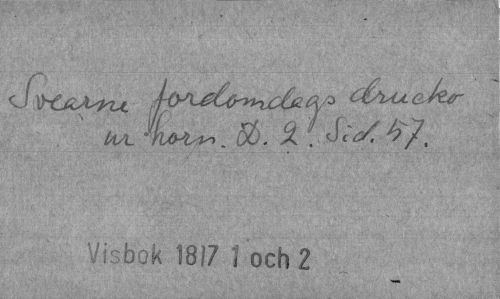 Svearne fordomdags drucko
ur horn. D. 2. Sid. 57.
Visbok 1817 1 och 2